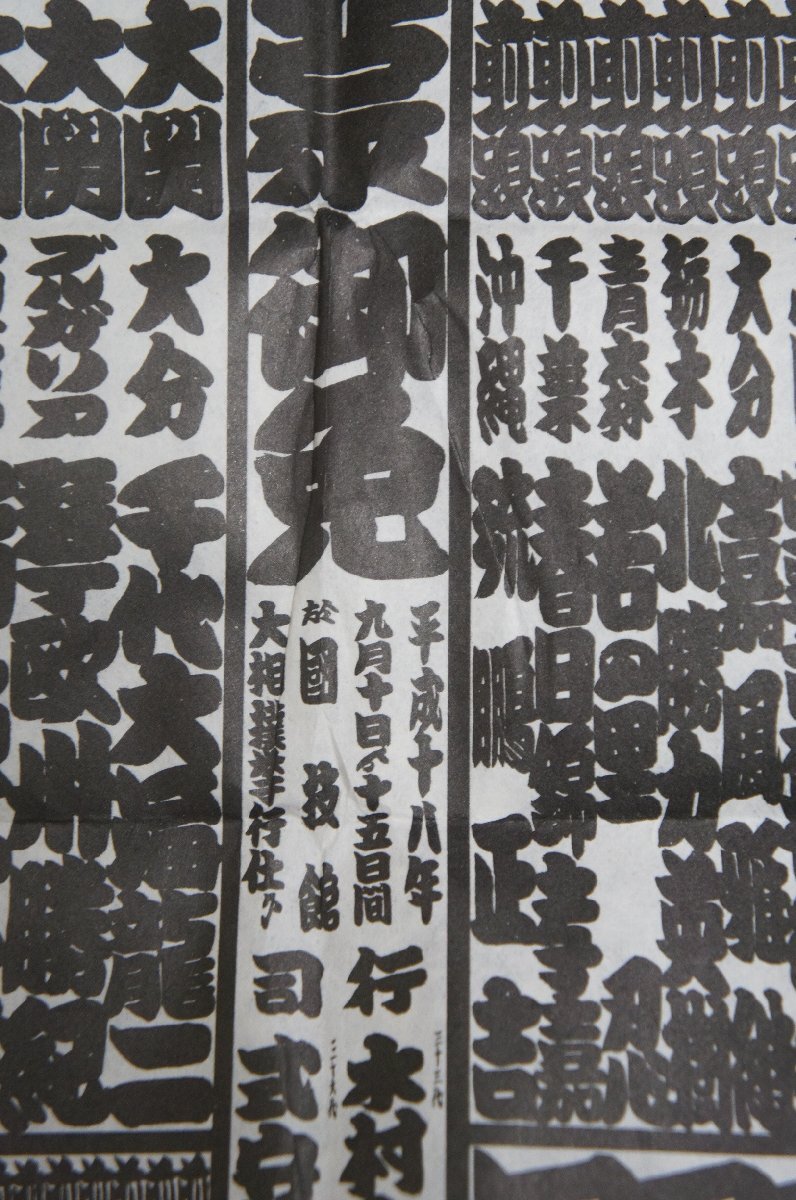 前頭 大分 嘉風 雅継
前頭 栃木 北勝力 英樹
前頭 青森 若の里 忍
前頭 千葉 春日錦 孝嘉
前頭 沖縄 琉鵬 正吉
蒙御免
平成十八年
九月十日ゟ十五日間
於國技館
大相撲挙行仕候
行司
三十三代
木村
式守
大関 大分 千代大海 龍二
大関 ブルガリア 琴欧州 勝紀